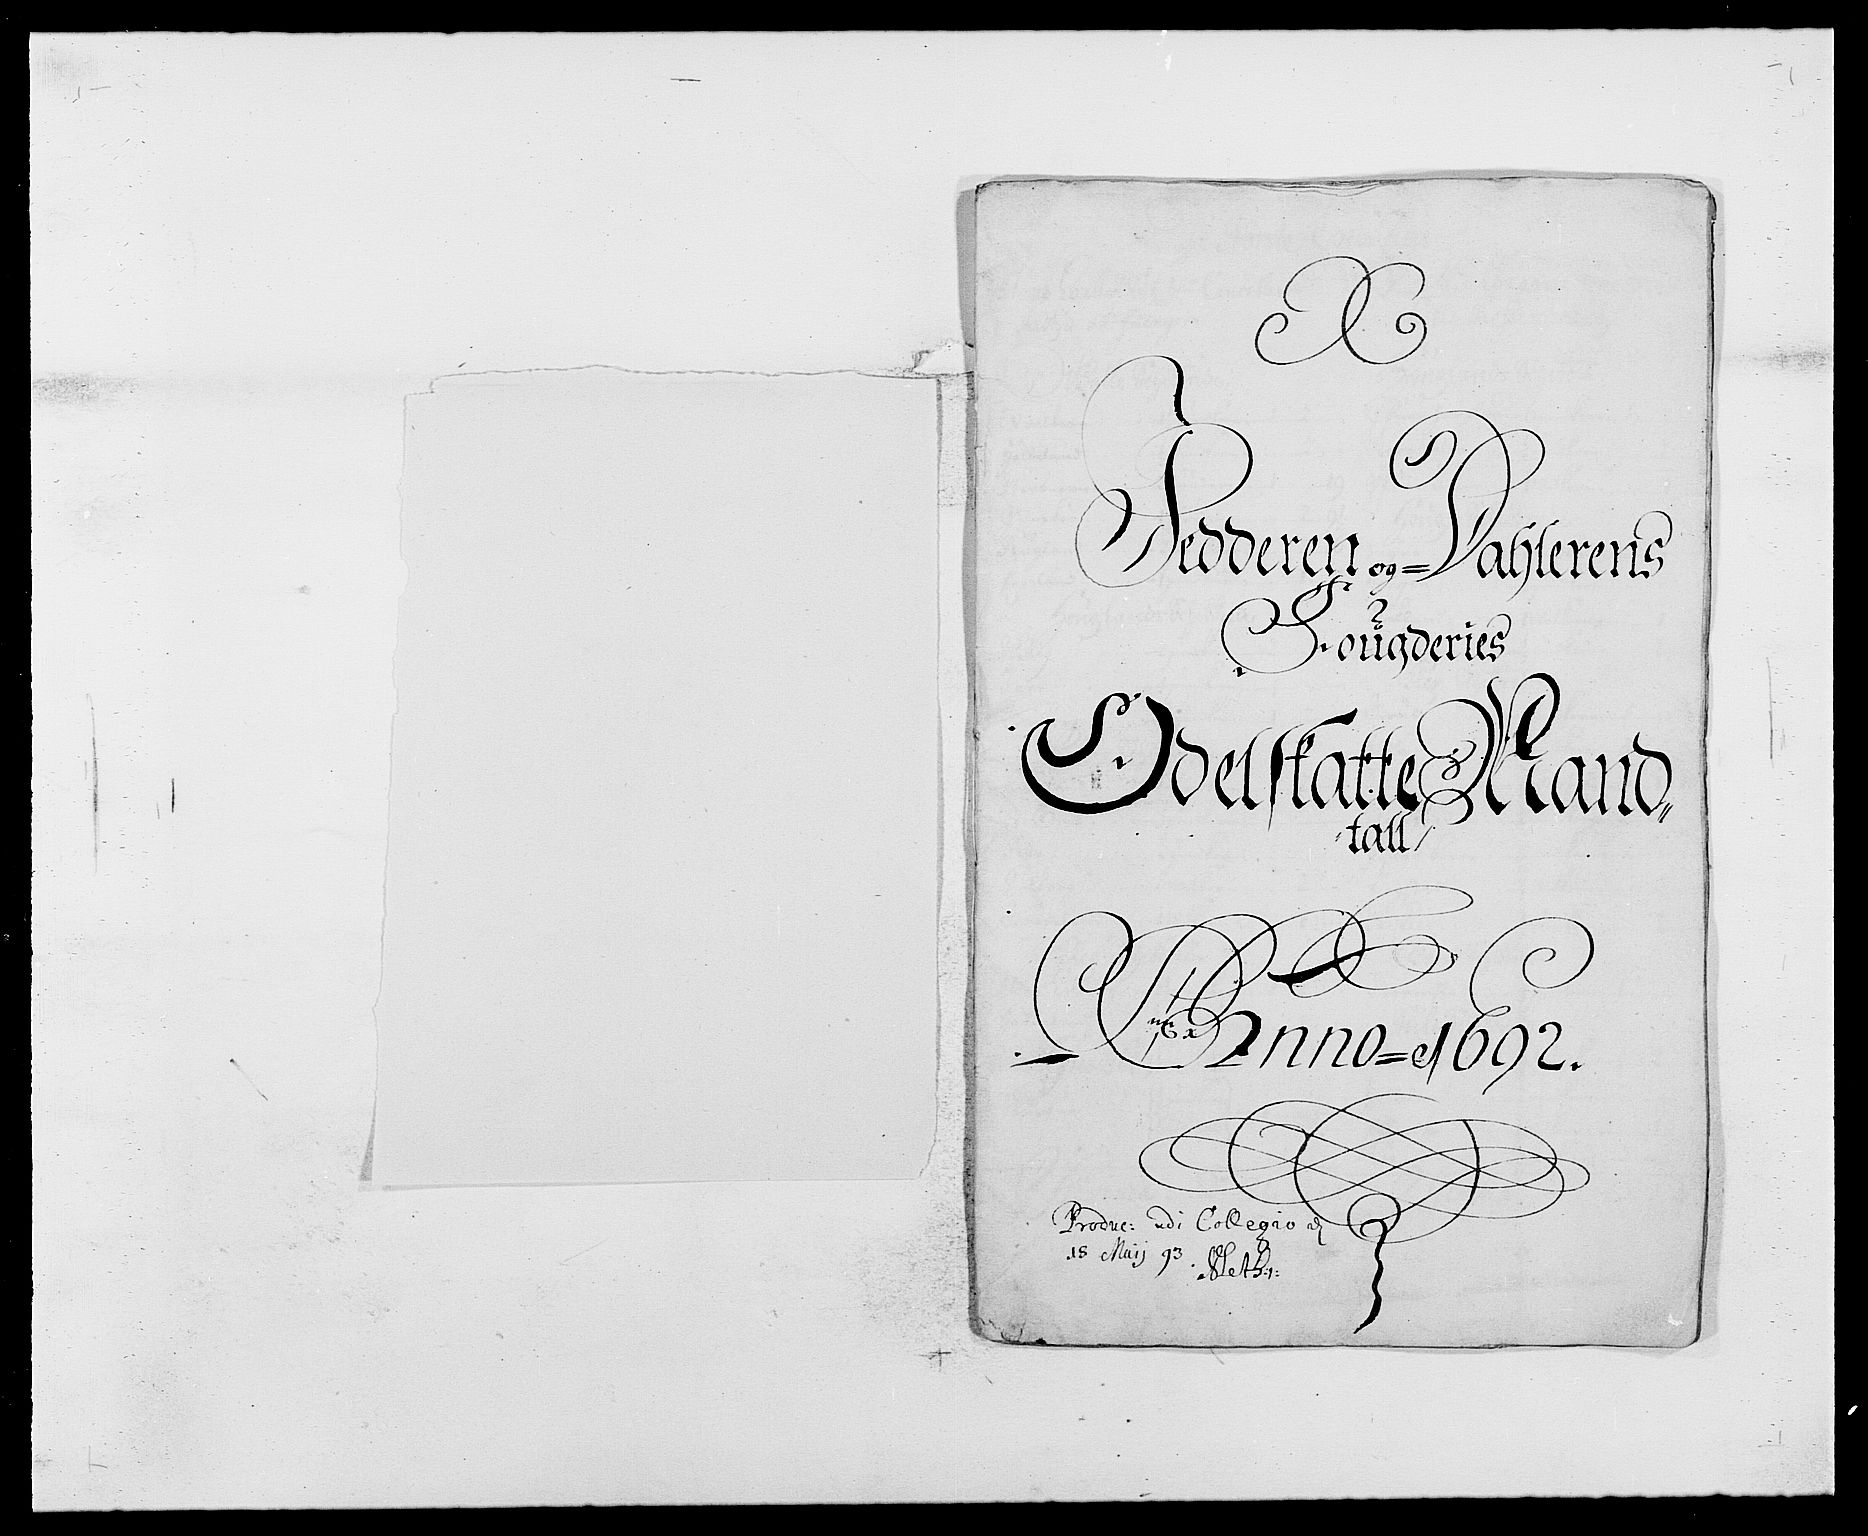 Jedderen og= Dahlerens
Fougderies
Odelskatte Mand„
tall
Anno=1692.
Produc: udi Collegio d
18 Maij 93.